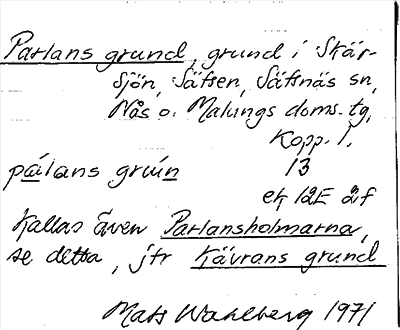 Parlans grund, grund i Skär-
sjön, Säfsen, Säfsnäs sn,
Nås o. Malungs doms. tg,
Kopp. l.
13
pálans grún
ek 12E 2f
Kallas även Parlansholmarna,
se detta, jfr Kävrans grund
Mats Wahlberg 1971